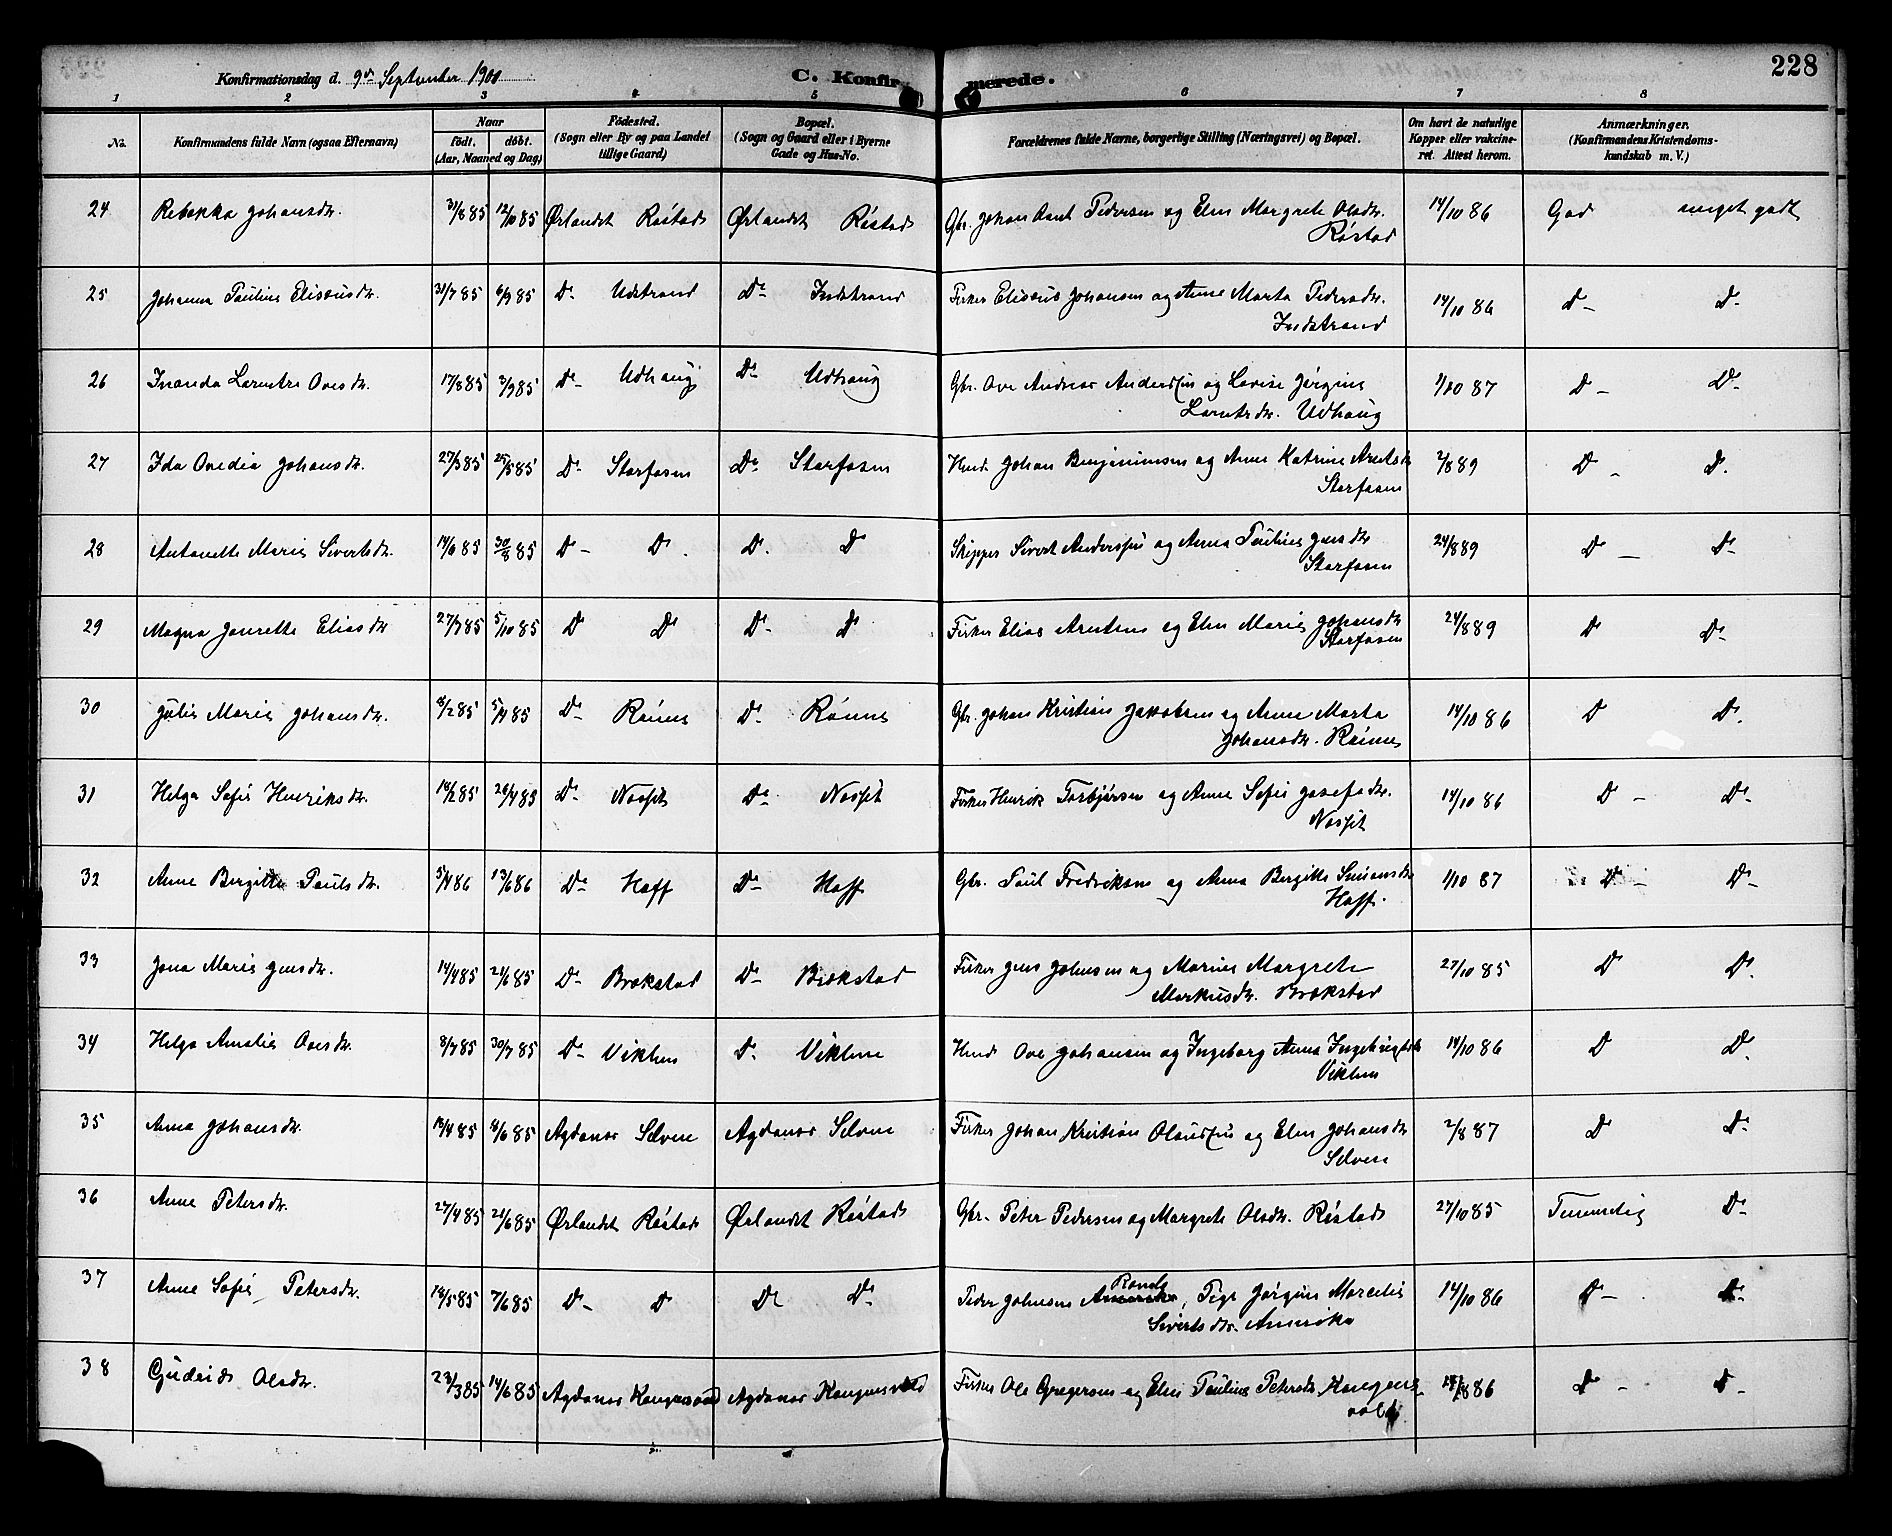 228
Konfirmationsdag d. 9de September 1900 C. Konfirmerede.
1 2 3 4 5 6 7 8
No. Konfirmandens fulde Navn (ogsaa Efternavn) Naar født. døbt. (Aar, Maaned og Dag) Fødested. (Sogn eller By og paa Landet tillige Gaard) Bopæl. (Sogn og Gaard eller i Byerne Gade og Hus-No. Forældrenes fulde Navne, borgerlige Stilling (Næringsvei) og Bopæl. Om havt de naturlige Kopper eller vakcineret. Attest herom. Anmærkninger. (Konfirmandens Kristendomskundskab m. V.)
24 Rebekka Johansdr. 31/8 85 12/10 85 Ørlandet Røstad Ørlandet Røstad Gbr. Johan Arnt Pedersen og Elen Margrete Olsdr. 14/10 86 God meget godt
Røstad
25 Johanna Pauline Eliseusdr. 31/7 85 6/9 85 Do Udstrand Do Indstrand Fisker Eliseus Johansen og Anne Marta Pedersdr. 14/10 86 Do Do
Indstrand
26 Inanda Larntse Ovesdr. 17/8 85 3/9 85 Do Udhaug Do Udhaug Gbr. Ove Andreas Anderssen og Lovise Jørgine 1/10 87 Do Do
Larntsdr. Udhaug
27 Ida Ovedia Johansdr. 27/3 85 25/5 85 Do Storfosen Do Storfosen Husmd. Johan Benjaminsen og Anne Katrine Arntsdr 2/8 89 Do Do
Storfosen
28 Antonette Marie Sivertsdr. 14/6 85 30/8 85 Do Do Do Do Skipper Sivert Anderssen og Anna Pauline Jensdr 24/8 89 Do Do
Storfosen
29 Magna Jonrette Eliasdr 27/7 85 5/10 85 Do Do Do Do Fisker Elias Arntsen og Elen Marie Johansdr 24/8 89 Do Do
Storfosen
30 Julie Marie Johansdr. 8/2 85 5/4 85 Do Rønne Do Rønne Gbr. Johan Kristian Jakobsen og Anne Marta 14/10 86 Do Do
Johansdr. Rønne
31 Helga Sofie Henriksdr. 14/2 85 26/4 85 Do Do Fisker Henrik Torbjørsen og Anne Sofie Josefsdr. 14/10 86 Do Do
32 Anne Bergitte Paulsdr. 5/4 86 13/6 86 Do Hoff Do Hoff Gbr. Paul Fredriksen og Anna Bergitte Simonsdr 1/10 87 Do Do
Hoff.
33 Jona Marie Jensdr. 14/4 85 21/6 85 Do Brekstad Do Brekstad Fisker Jens Johnsen og Marine Margrete 27/10 85 Do Do
Markusdr. Brekstad
34 Helga Amalie Ovesdr. 8/7 85 30/7 85 Do Viklem Do Viklem Husmd Ove Johansen og Ingeborg Anna Ingebrigtsdr 14/10 86 Do Do
Viklem
35 Anna Johansdr. 13/4 85 4/6 85 Agdanes Selven Agdanes Selven Fisker Johan Kristian Olaussen og Elen Johansdr 2/8 87 Do Do
Selven
36 Anne Petersdr. 27/4 85 21/6 85 Ørlandet Røstad Ørlandet Røstad Gbr. Peter Pedersen og Margrete Olsdr. Røstad 27/10 85 Temmelig Do
37 Anne Sofie Petersdr. 14/5 85 7/6 85 Do Do Do Do Peder Johnsen Amerika, Pige Jørgine Marcelie 14/10 86 Do Do
Sivertsdr. Amerika
38 Gudrid Olsdr. 23/3 85 14/6 85 Agdanes Kongensvold Agdanes Kongensvold Fisker Ole Gregersen og Elen Pauline Petersdr. Kongens- 14/8 86 Do Do
vold